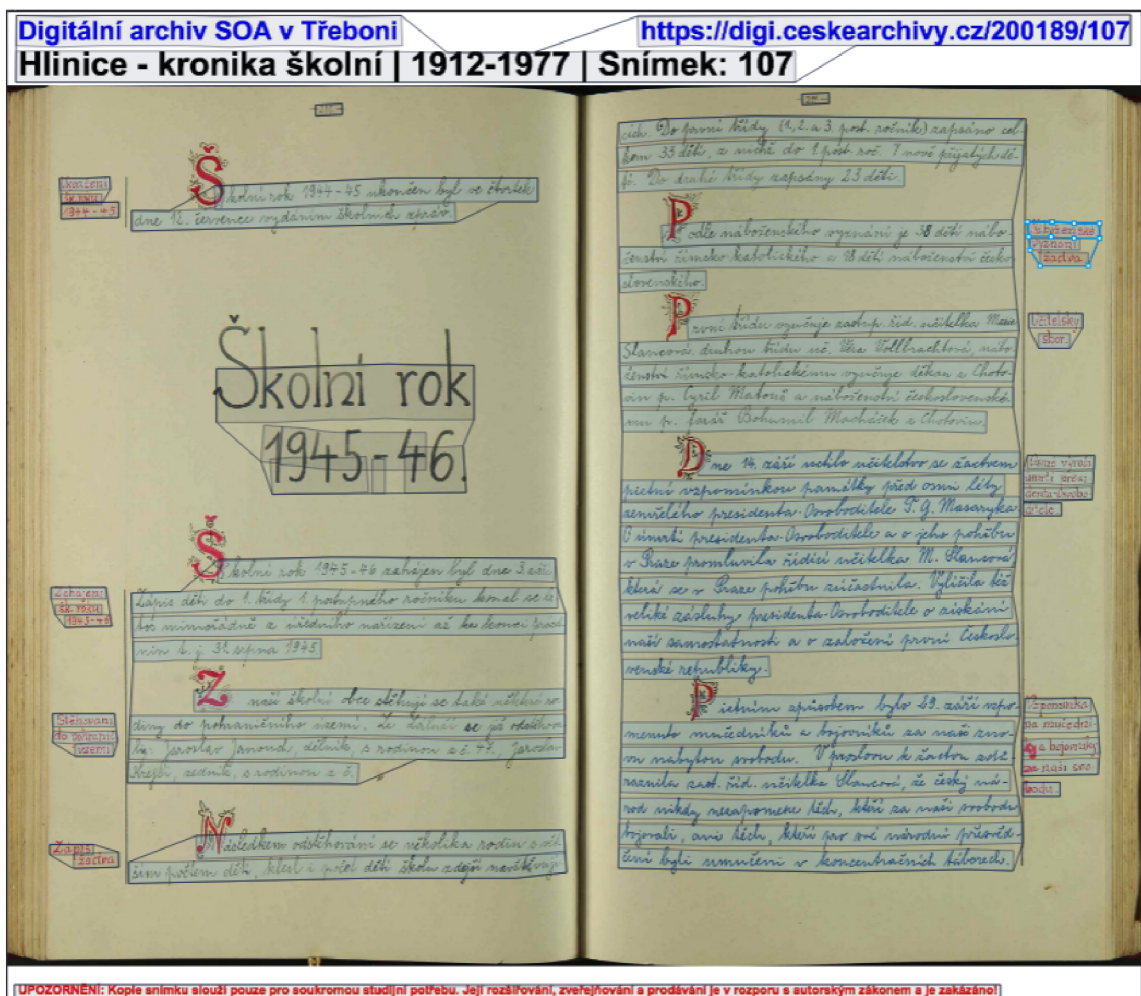 Digitální archiv SOA v Třeboni
https://digi.ceskearchivy.cz/200189/107
Hlinice - kronika školní | 1912-1977 | Snímek: 107
Skončení
šk. roku
1944-45
Školní rok 1944-45 ukončen byl ve čtvrtek
dne 12. července vydáním školních zpráv.
Školní rok
1945-46.
Zahájení
šk. roku
1945-46
Školní rok 1945-46 zahájen byl dne 3. září.
Zápis dětí do 1. třídy 1. postupného ročníku konal se le-
tos mimořádně z úředního nařízení až ke konci prázd-
nin t. j. 31. srpna 1945.
Stěhování
do pohranič.
území
Z naší školní obce stěhují se také některé ro-
diny do pohraničního území. Ze Lhoty se již odstěhova-
ly: Jaroslav Janouch, dělník, s rodinou z č. 47., Jaroslav
Krejčí, zedník, s rodinou z č.
Zápis
žactva
Následkem odstěhování se několika rodin s vět-
ším počtem dětí, klesl i počet dětí školu zdejší navštěvují-
cích. Do první třídy (1., 2. a 3. post. ročník) zapsáno cel-
kem 33 dětí, z nichž do 1. post. roč. 7 nově přijatých dě-
tí. Do druhé třídy zapsány 23 děti.
Náboženské
vyznání
žactva
Podle náboženského vyznání je 38 dětí nábo-
ženství římsko-katolického a 18 dětí náboženství česko-
slovenského.
Učitelský
sbor.
První třídu vyučuje zastup. říd. učitelka Marie
Slancová, druhou třídu uč. Věra Vollbrachtová, nábo-
ženství římsko-katolickému vyučuje děkan z Choto-
vin p. Cyril Matouš a náboženství československé-
mu p. farář Bohumil Macháček z Chotovin.
úmrtí presi-
denta-Osvobo-
ditele.
Dne 14. září uctilo učitelstvo se žactvem
pietní vzpomínkou památky před osmi léty
zemřelého presidenta-Osvoboditele T. G. Masaryka
O úmrtí presidenta-Osvoboditele a o jeho pohřbu
v Praze promluvila řídící učitelka M. Slancová
která se v Praze pohřbu zúčastnila. Vylíčila též
veliké zásluhy presidenta-Osvoboditele o získání
naší samostatnosti a o založení první Českoslo-
venské republiky.
Vzpomínka
na mučední-
ky a bojovníky
za naši svo-
bodu.
Pietním způsobem bylo 29. září vzpo-
menuto mučedníků a bojovníků za naši zno-
vu nabytou svobodu. V proslovu k žactvu zdů-
raznila zast. říd. učitelka Slancová, že český ná-
rod nikdy nezapomene těch, kteří za naši svobodu
bojovali, ani těch, kteří pro své národní přesvěd-
čení byli umučeni v koncentračních táborech.
UPOZORNĚNÍ: Kopie snímku slouží pouze pro soukromou studijní potřebu. Její rozšiřování, zveřejňování a prodávání je v rozporu s autorským zákonem a je zakázáno!